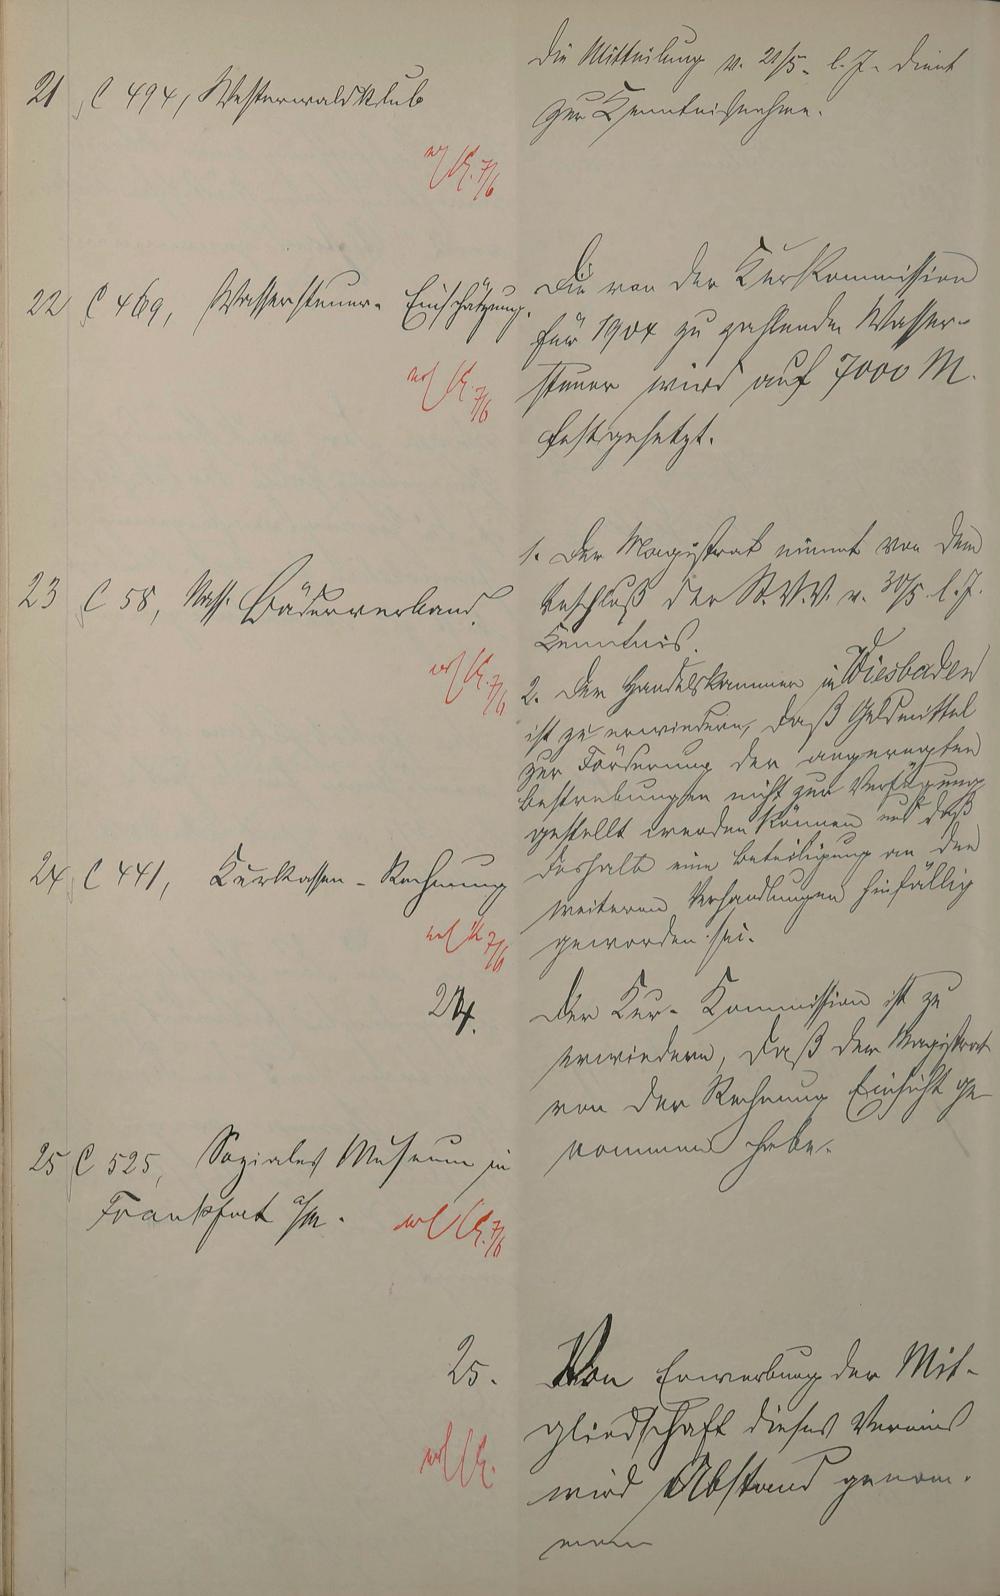 21 C 494, Westerwaldklub
Die Mitteilung v. 21/5. l. J. dient
zur Kenntnisnahme.
7/6
22 C 469, Wassersteuer-Einschätzung.
Die von der Kurkommission
für 1904 zu zahlende Wasser-
steuer wird auf 7000 M.
festgesetzt.
7/6
23 C 58, Nass. Bäderverband.
1. Der Magistrat nimmt von dem
Beschluß der St.V.V. v. 30/5. l. J.
Kenntnis.
2. Der Handelskammer in Wiesbaden
ist zu erwiedern, daß Geldmittel
zur Förderung der angeregten
Bestrebungen nicht zur Verfügung
gestellt werden können und daß
deshalb eine Beteiligung an den
weiteren Verhandlungen hinfällig
geworden sei.
7/6
24 C 441, Kurkassen-Rechnung
7/6
24.
Der Kur-Kommission ist zu
erwiedern, daß der Magistrat
von der Rechnung Einsicht ge-
nommen habe.
25 C 525, Soziales Museum in
Frankfurt a/M.
7/6
25. Von Erwerbung der Mit-
gliedschaft dieses Vereins
wird Abstand genom-
men